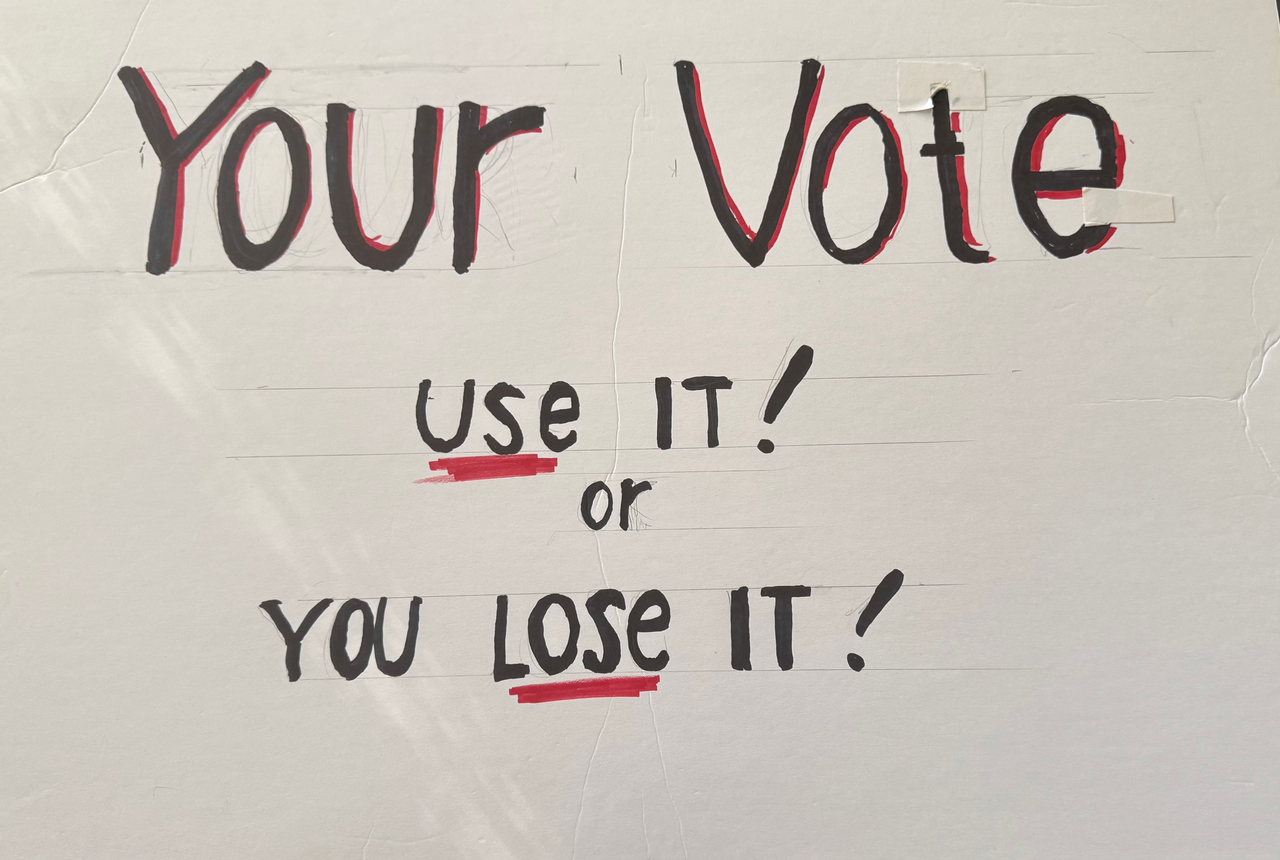 Your Vote
Use IT!
or
YOU LOSe IT!